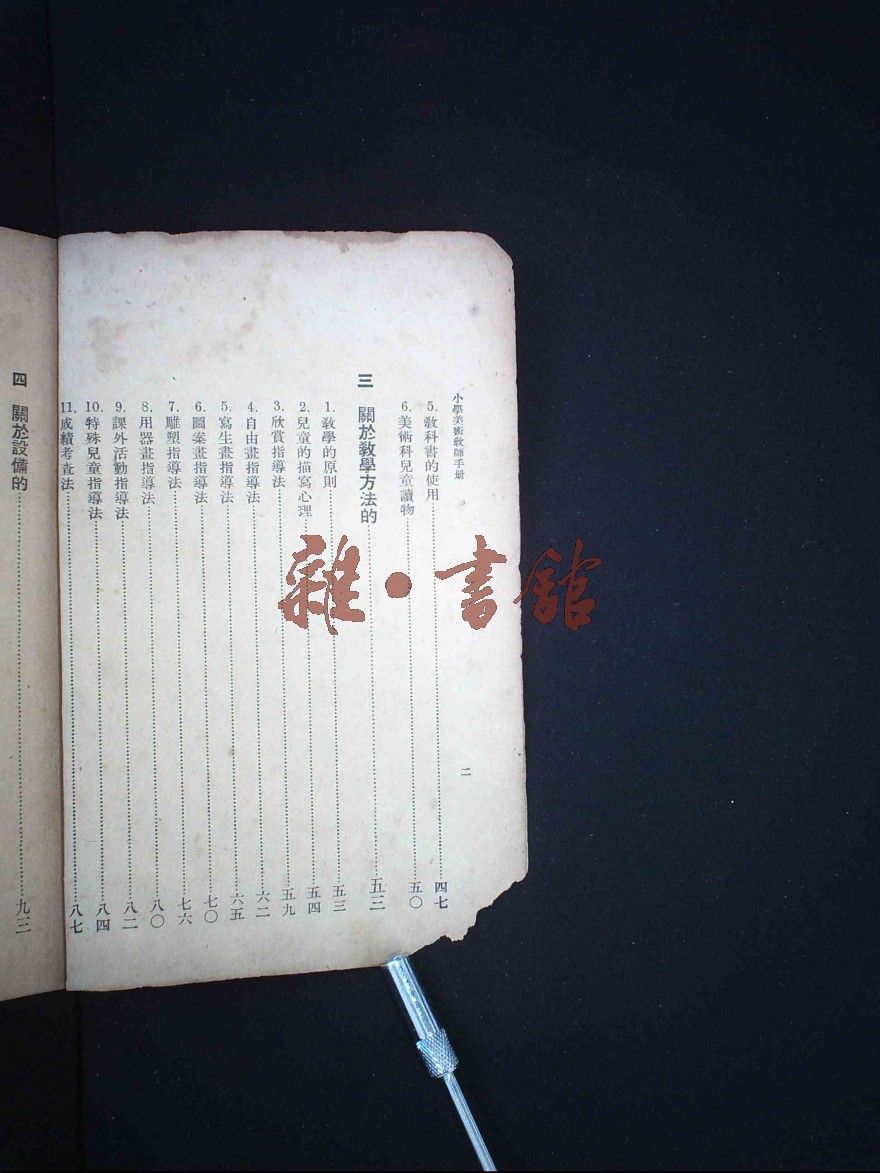 小學美術教師手册
5. 教科書的使用 四七
6. 美術科兒童讀物 五〇
三 關於教學方法的 五三
1. 教學的原則 五三
2. 兒童的描寫心理 五四
3. 欣賞指導法 五九
4. 自由畫指導法 六二
5. 寫生畫指導法 六五
6. 圖案畫指導法 七〇
7. 雕塑指導法 七六
8. 用器畫指導法 八〇
9. 課外活動指導法 八二
10. 特殊兒童指導法 八四
11. 成績考查法 八七
二
四 關於設備的 九三
雜·書館